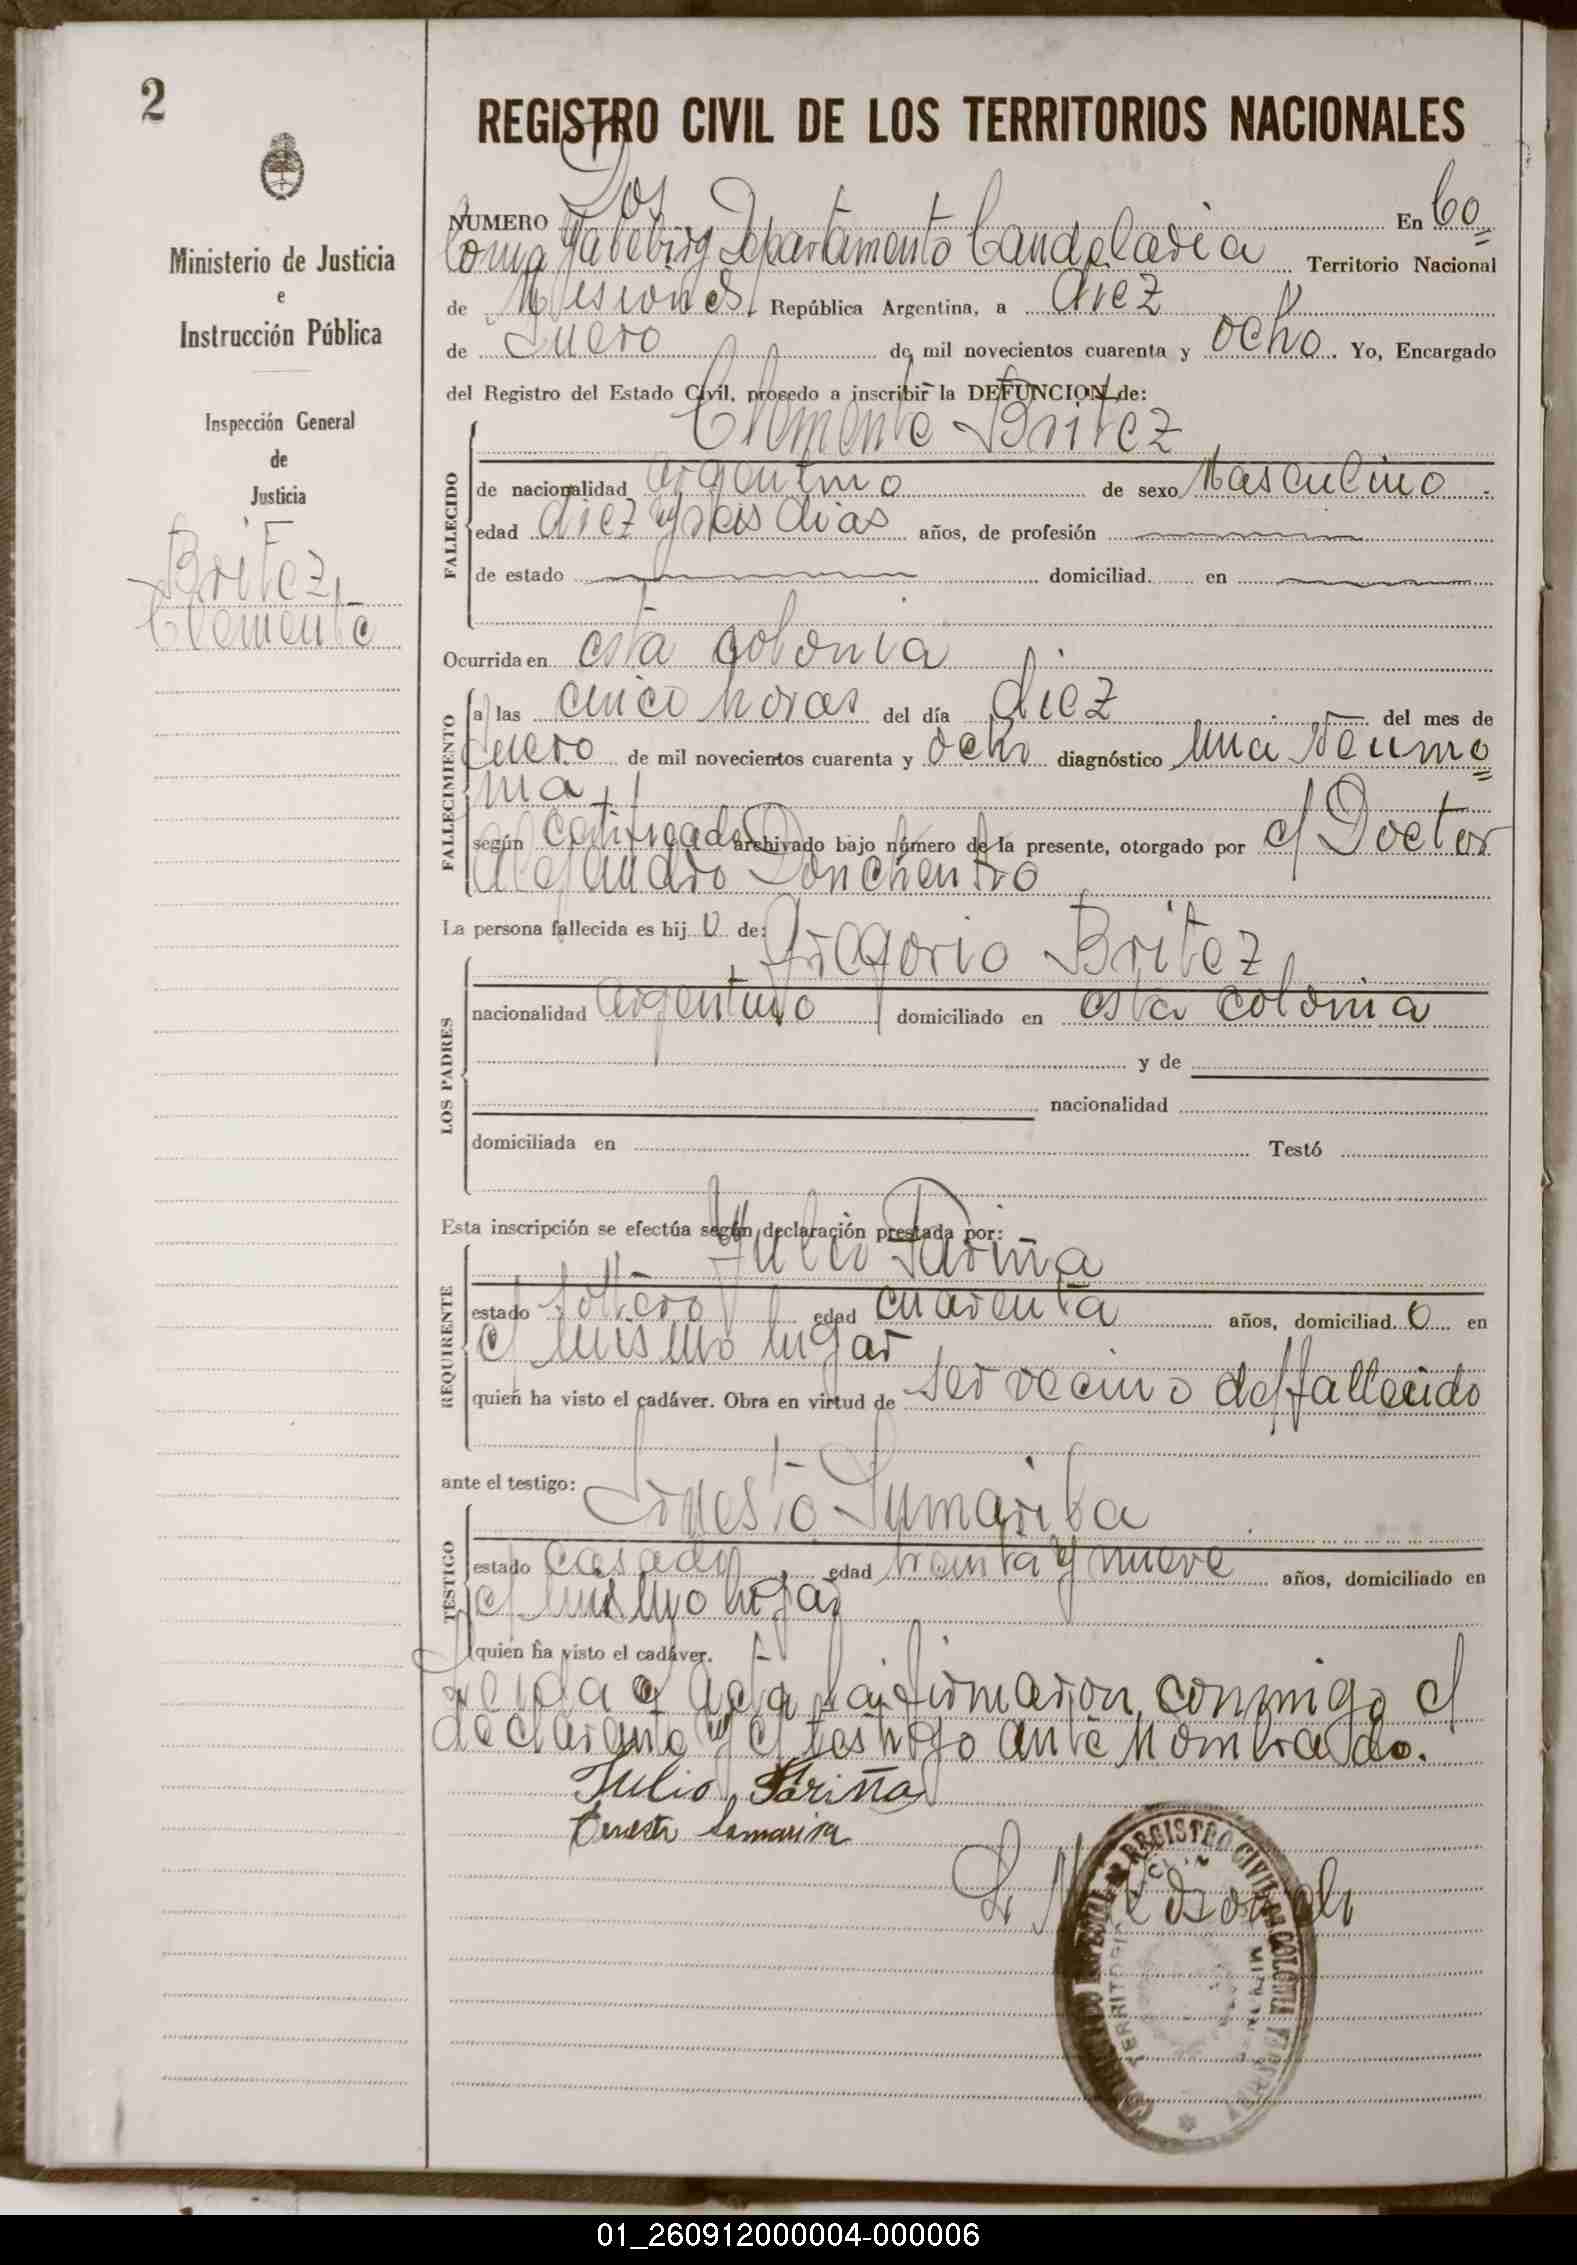 2
REGISTRO CIVIL DE LOS TERRITORIOS NACIONALES
Ministerio de Justicia
e
Instrucción Pública
Inspección General
de
Justicia
Britez,
Clemente
NUMERO Dos En Co=
lonia Yabebiry Departamento Candelaria Territorio Nacional
de Misiones República Argentina, a diez
de Enero de mil novecientos cuarenta y ocho. Yo, Encargado
del Registro del Estado Civil, procedo a inscribir la DEFUNCION de:
Clemente Britez
FALLECIDO
de nacionalidad argentino de sexo Masculino
edad diez y seis dias años, de profesión
de estado domiciliad en
Ocurrida en esta colonia
FALLECIMIENTO
a las cinco horas del día diez del mes de
Enero de mil novecientos cuarenta y ocho diagnóstico una Neumo=
nia
según archivado bajo número de la presente, otorgado por el Doctor
Alejandro
La persona fallecida es hijo de: Gregorio Britez
LOS PADRES
nacionalidad argentino domiciliado en esta colonia
y de
nacionalidad
domiciliada en Testó
Esta inscripción se efectúa según declaración prestada por:
Julio Fariña
REQUIRENTE
estado soltero edad cuarenta años, domiciliado en
el mismo lugar
quien ha visto el cadáver. Obra en virtud de ser vecino del fallecido
ante el testigo: Ernesto
TESTIGO
estado casado edad treinta y nueve años, domiciliado en
el mismo lugar
quien ha visto el cadáver.
Leida el acta la firmaron conmigo el
declarante y el testigo ante nombrado.
Julio Fariña
Ernesto
REGISTRO CIVIL COLONIA
01_260912000004-000006